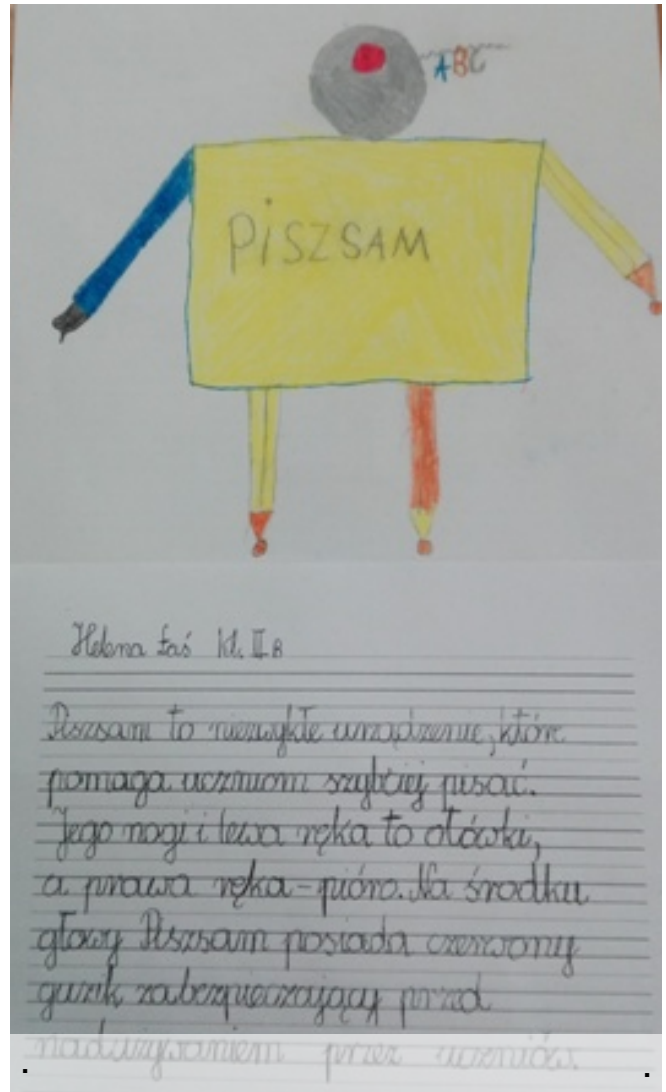 ABC
PiSZSAM
Helena Łaś kl. II B
Piszsam to niezwykłe urządzenie, które
pomaga uczniom szybciej pisać.
Jego nogi i lewa ręka to ołówki,
a prawa ręka - pióro. Na środku
głowy Piszsam posiada czerwony
guzik zabezpieczający przed
nadużywaniem przez uczniów.